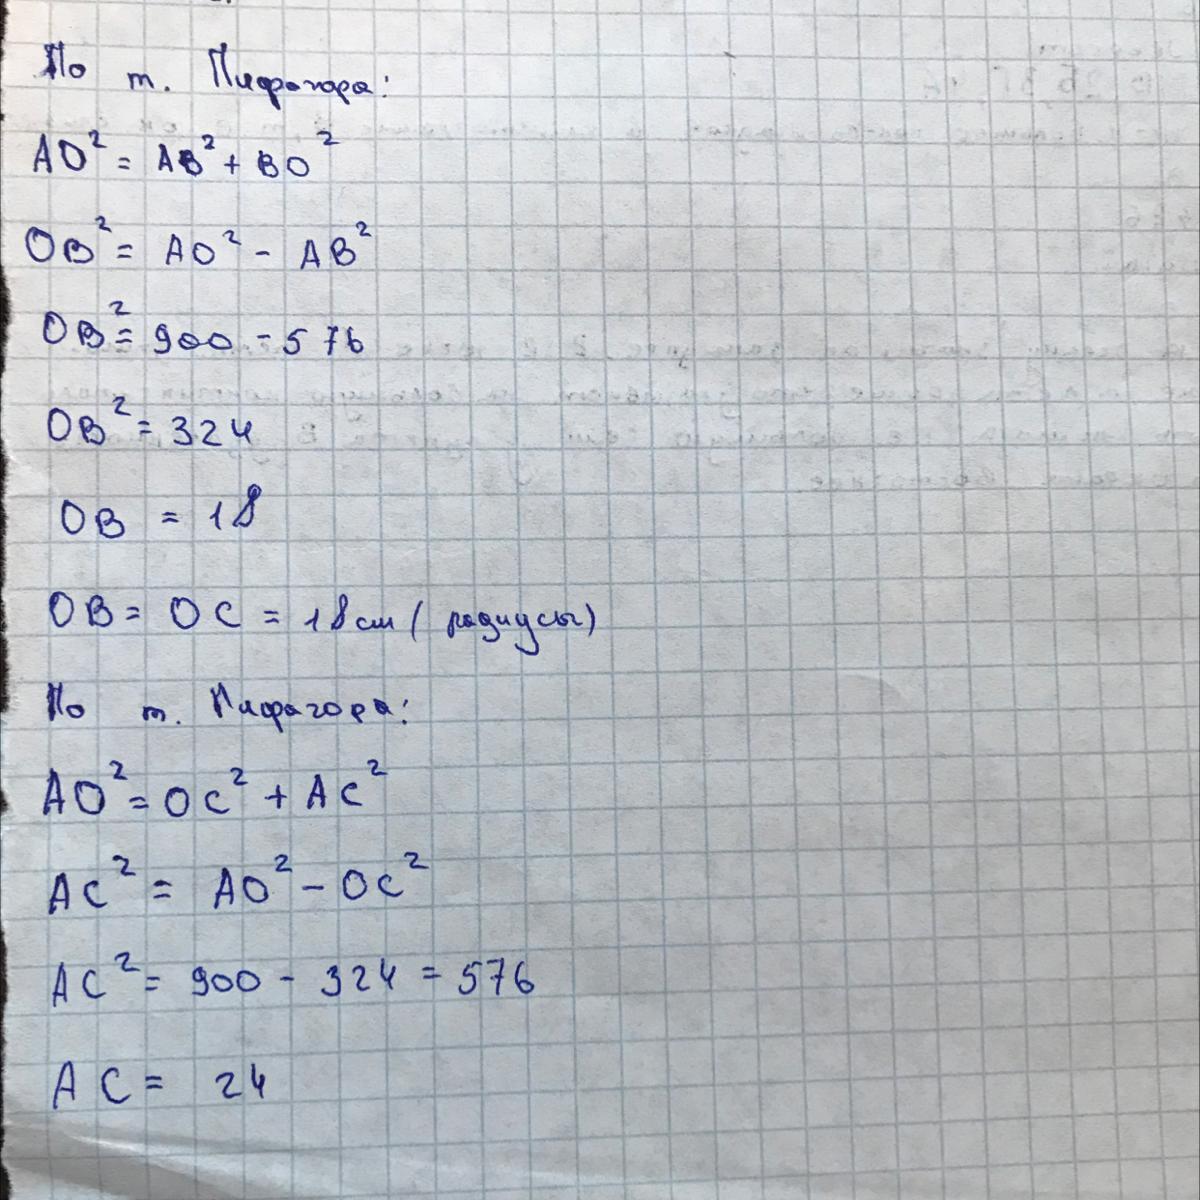 По т. Пифагора:
AO² = AB² + BO²
OB² = AO² - AB²
OB² = 900 - 576
OB² = 324
OB = 18
OB = OC = 18 см ( радиусы)
По т. Пифагора:
AO² = OC² + AC²
AC² = AO² - OC²
AC² = 900 - 324 = 576
AC = 24